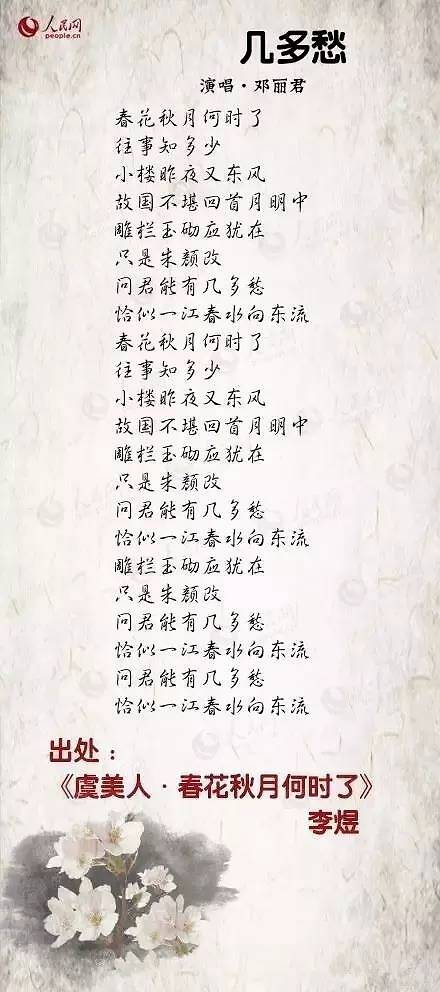 人民网
people.cn
几多愁
演唱·邓丽君
春花秋月何时了
往事知多少
小楼昨夜又东风
故国不堪回首月明中
雕栏玉砌应犹在
只是朱颜改
问君能有几多愁
恰似一江春水向东流
春花秋月何时了
往事知多少
小楼昨夜又东风
故国不堪回首月明中
雕栏玉砌应犹在
只是朱颜改
问君能有几多愁
恰似一江春水向东流
雕栏玉砌应犹在
只是朱颜改
问君能有几多愁
恰似一江春水向东流
问君能有几多愁
恰似一江春水向东流
出处：
《虞美人·春花秋月何时了》
李煜